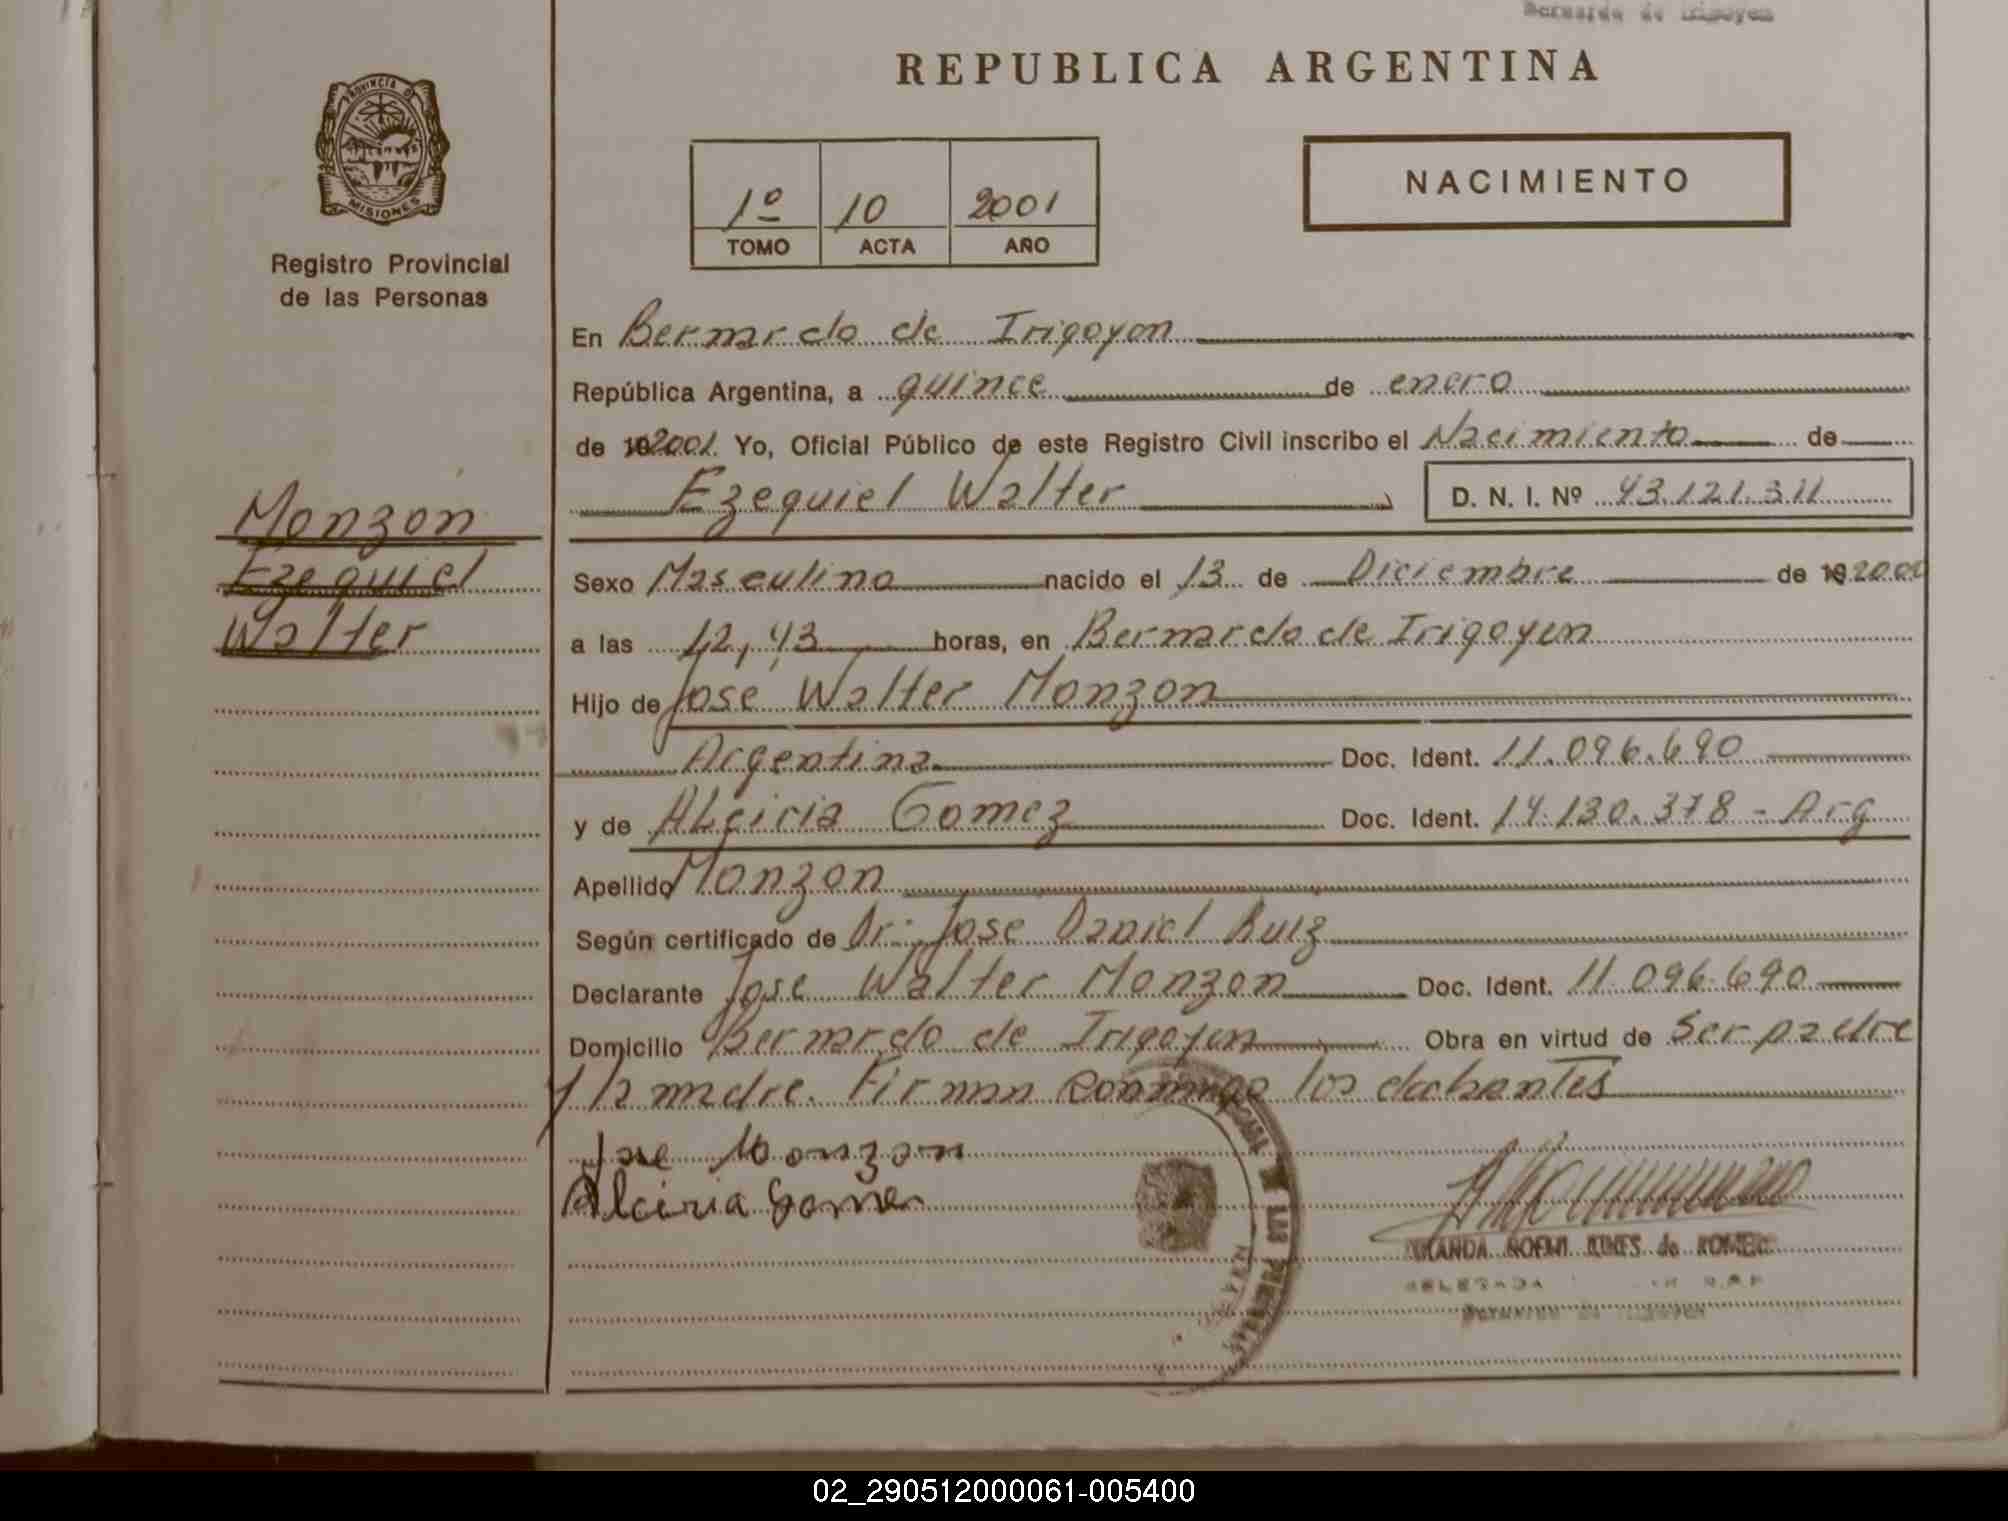 Bernardo de Irigoyen
REPUBLICA ARGENTINA
PROVINCIA DE
MISIONES
Registro Provincial
de las Personas
NACIMIENTO
1º 10 2001
TOMO ACTA AÑO
En Bernardo de Irigoyen
República Argentina, a quince de enero
de 2001. Yo, Oficial Público de este Registro Civil inscribo el Nacimiento de
Ezequiel Walter D. N. I. Nº 43.121.311
Monzon
Ezequiel
Walter
Sexo Masculino nacido el 13 de Diciembre de 2000
a las 12,43 horas, en Bernardo de Irigoyen
Hijo de Jose Walter Monzon
Argentina Doc. Ident. 11.096.690
y de Alciria Gomez Doc. Ident. 14.130.378 - Arg
Apellido Monzon
Según certificado de Dr. Jose Daniel Ruiz
Declarante Jose Walter Monzon Doc. Ident. 11.096.690
Domicilio Bernardo de Irigoyen Obra en virtud de Ser padre
y la madre. Firman conmigo los
Jose Monzon
Alciria Gomez
DE LAS PERSONAS
NOEMI de
DELEGADA
Bernardo de Irigoyen
02_290512000061-005400